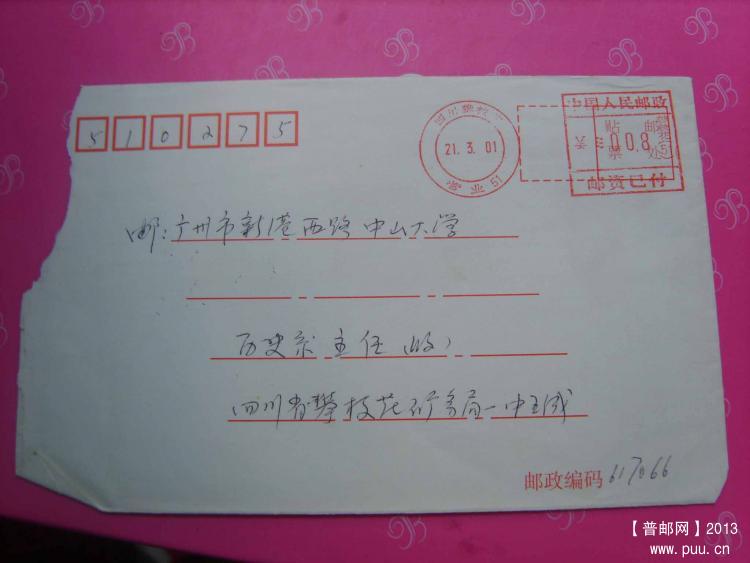 510275
四川攀枝花
21.3.01
营业51
中国人民邮政
贴 邮
票 处
008
邮资已付
邮:广州市新港西路中山大学
历史系主任(收)
四川省攀枝花矿务局一中王成
邮政编码 617066
【普邮网】2013
www.puu.cn